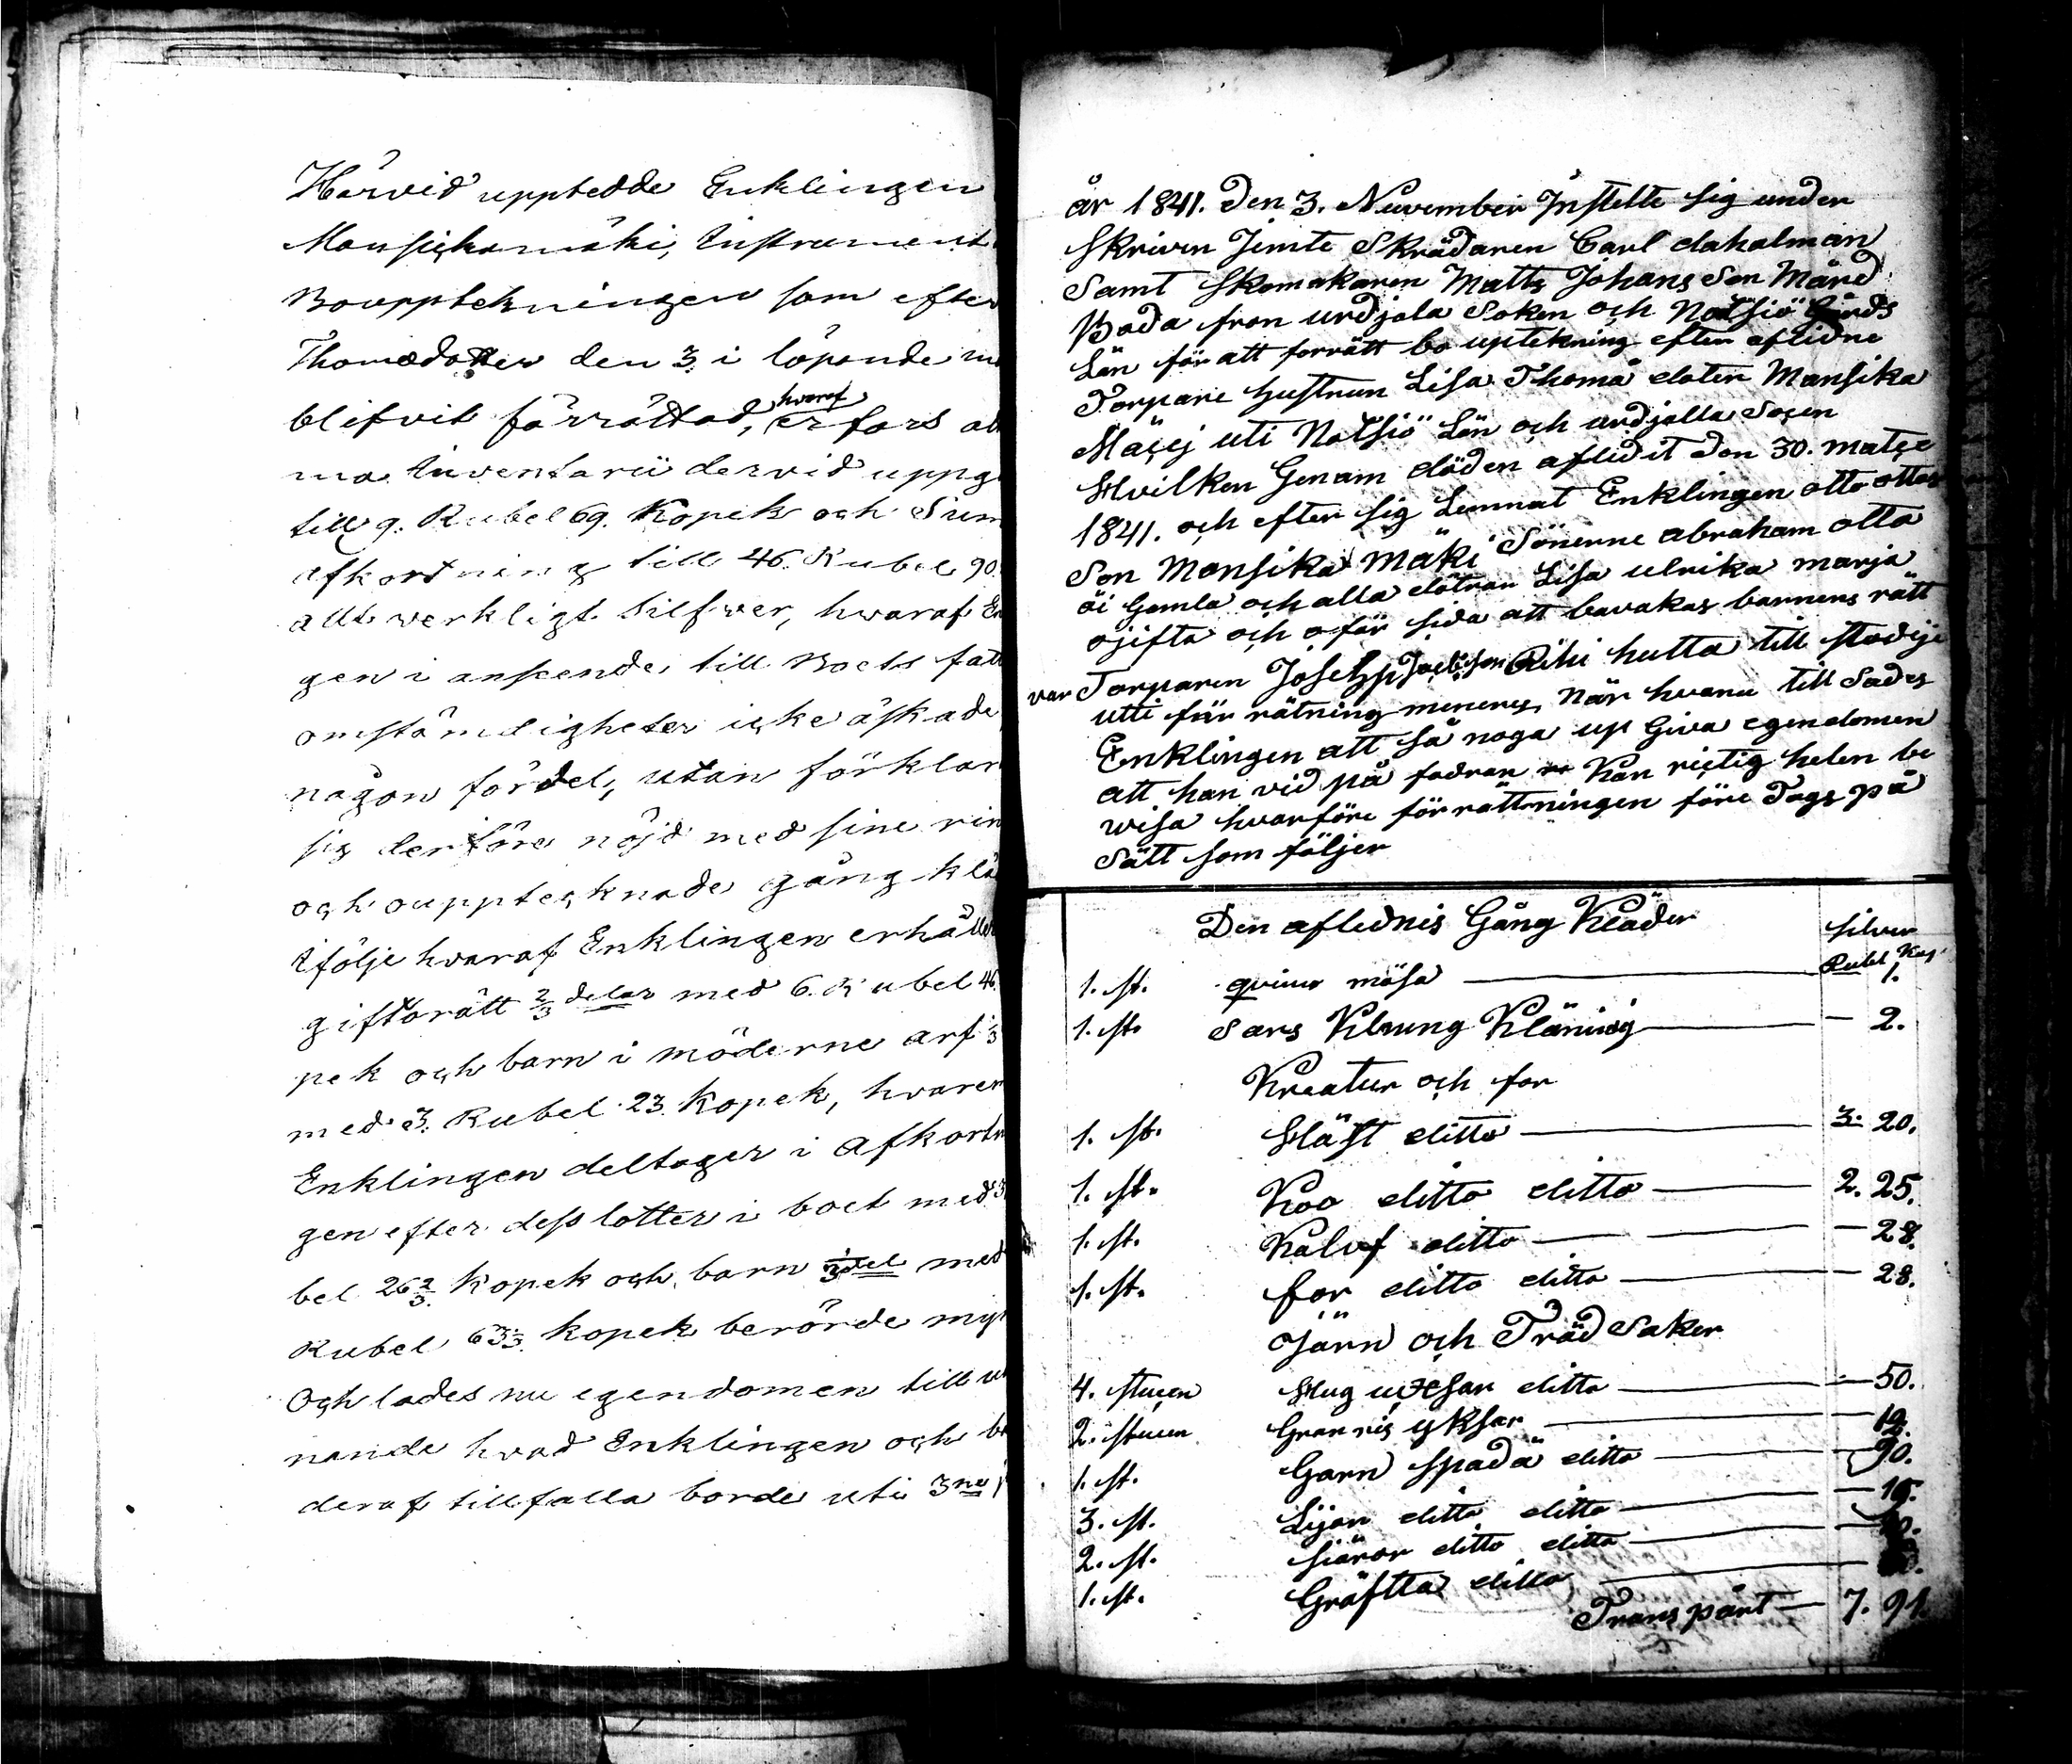 Härvid uppteddе Enklingen
Mansickamäki, Instrument
Boupptekningen som efter
Thomædotter den 3. i löpande
blifvit förrättad, hvaraf erfars at
ma Inventarii dervid uppg
till 9. Rubel 69. Kopek och Sum
afkortning till 46. Rubel 90.
allt verkligt Silfwer, hwaraf En
gen i anseende till Boets fatt
omständigheter icke äskade
någon fördel, utan förklar
sig derföre nöjd med sine rin
och oupptecknade gång klä
Ifölje hvaraf Enklingen erhåller
giftorätt 2/3 delar med 6. Rubel 46.
pek och barn i möderne arf 1/3
med 3. Rubel 23. Kopek, hvarem
Enklingen deltager i Afkortn
gen efter dess lotter i boet med 3
bel 26 2/3. Kopek och barn 1/3 del med
Rubel 63 1/3. Kopek berörde myn
Och lades nu egendomen till ut
nande hvad Enklingen och ba
deraf tillfalla borde uti 3ne
år 1841. Den 3. Nuvember Instelte sig under
skriven Jemte Skrädaren Carl dahalman
Samt skomakaren Matts Johans Son Mård
Boda fron urdjala Soken och Notsiö Gårds
Län för att forrätt bo uptekning efter aflidne
Torpare hustrun Lisa Thoma doter Mansika
Mäcej uti Notsiö Län och urdjalla Socen
Hvilken Genam döden aflidit Den 30. matse
1841. och efter sig Lemnat Enklingen otto ottos
Son Mansika Mäki Sönerne abraham otto
äi Gamla och alla dötrar Lisa ulrika marja
ojifta och oför sida att bavakas barnens rätt
var Torparen Joseph Jacobson Rihi hutta till stadije
utti för rätning meneres, När hvaru till Sades
Enklingen att så noga up Giva egendomen
att han vid på fodran Kan rictig heten be
wisa hvarföre förrättningen före Togs på
Sätt som följer
Den aflednis Gång Kläder silver
Rubel Kop
1. st. qvinn mösa 1.
1. st. Sars Klnung Kläning — 2.
Kreatur och for
1. st. Häst ditto 3. 20.
1. st. Koo ditto ditto 2. 25.
1. st. Kalvf ditto — 28.
1. st. for ditto ditto — 28.
Järn och Träd Saker
4. stucen Hug uxsar ditto — 50.
2. stucen Grannis yksar — 12.
1. st. Garn spadä ditto — 90.
3. st. Lijar ditto ditto — 15.
2. st. siäror ditto ditto
1. st. Gräftta ditto
Transpårt — 7. 91.